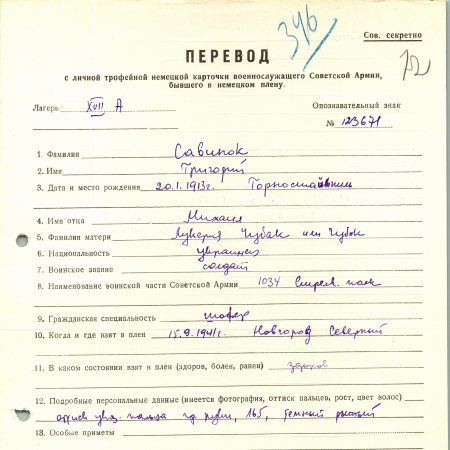 346
Сов. секретно
ПЕРЕВОД
72
с личной трофейной немецкой карточки военнослужащего Советской Армии,
бывшего в немецком плену.
Лагерь XVII A
Опознавательный знак
№ 123671
1. Фамилия Савинок
2. Имя Григорий
3. Дата и место рождения 20.1.1913г.
4. Имя отца Михаил
5. Фамилия матери Лукерия Чубак или Чубок
6. Национальность украинец
7. Воинское звание солдат
8. Наименование воинской части Советской Армии 1034 стрел. полк
9. Гражданская специальность шофер
10. Когда и где взят в плен 15.9.1941г. Новгород Северный
11. В каком состоянии взят в плен (здоров, болен, ранен) здоров
12. Подробные персональные данные (имеется фотография, оттиск пальцев, рост, цвет волос)
оттиск указ. пальца пр. руки, 165, темный русый
13. Особые приметы